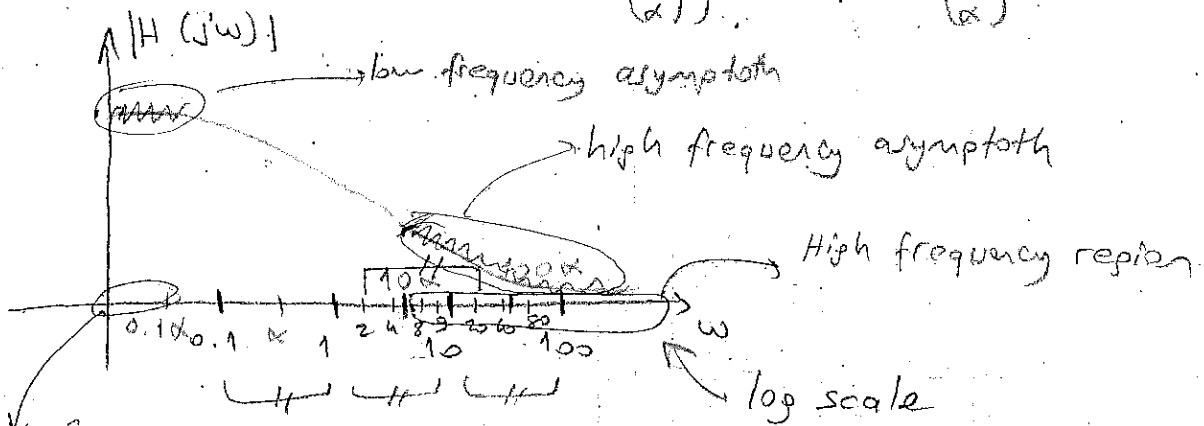 (α)). (α)
|H (jω)|
low frequency asymptoth
high frequency asymptoth
High frequency region
100α
10α
0.1α 0.1 α 1 2 4 8 9 10 20 60 80 100 ω
log scale